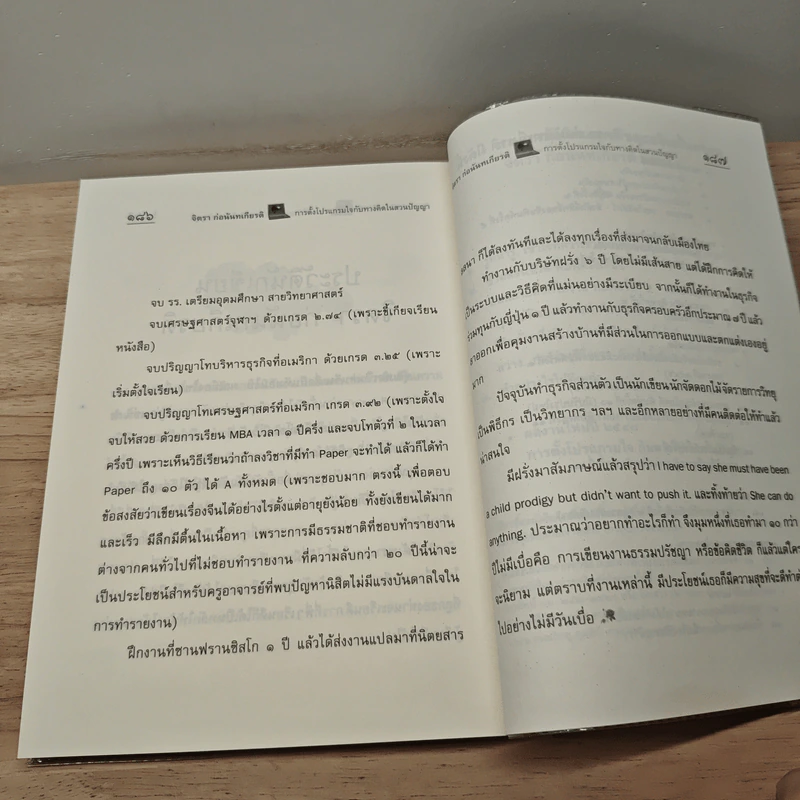 ๑๘๖
จิตรา ก่อนันทเกียรติ การตั้งโปรแกรมใจกับทางคิดในสวนปัญญา
จบ รร. เตรียมอุดมศึกษา สายวิทยาศาสตร์
จบเศรษฐศาสตร์จุฬาฯ ด้วยเกรด ๒.๗๔ (เพราะขี้เกียจเรียน
หนังสือ)
จบปริญญาโทบริหารธุรกิจที่อเมริกา ด้วยเกรด ๓.๒๕ (เพราะ
เริ่มตั้งใจเรียน)
จบปริญญาโทเศรษฐศาสตร์ที่อเมริกา เกรด ๓.๙๒ (เพราะตั้งใจ
จบให้สวย ด้วยการเรียน MBA เวลา ๑ ปีครึ่ง และจบโทตัวที่ ๒ ในเวลา
ครึ่งปี เพราะเห็นวิธีเรียนว่าถ้าลงวิชาที่มีทำ Paper จะทำได้ แล้วก็ได้ทำ
Paper ถึง ๑๐ ตัว ได้ A ทั้งหมด (เพราะชอบมาก ตรงนี้ เพื่อตอบ
ข้อสงสัยว่าเขียนเรื่องจีนได้อย่างไรตั้งแต่อายุยังน้อย ทั้งยังเขียนได้มาก
และเร็ว มีลึกมีตื้นในเนื้อหา เพราะการมีธรรมชาติที่ชอบทำรายงาน
ต่างจากคนทั่วไปที่ไม่ชอบทำรายงาน ที่ความลับกว่า ๒๐ ปีนี้น่าจะ
เป็นประโยชน์สำหรับครูอาจารย์ที่พบปัญหานิสิตไม่มีแรงบันดาลใจใน
การทำรายงาน)
ฝึกงานที่ซานฟรานซิสโก ๑ ปี แล้วได้ส่งงานแปลมาที่นิตยสาร
จิตรา ก่อนันทเกียรติ การตั้งโปรแกรมใจกับทางคิดในสวนปัญญา
๑๘๗
ก็ได้ลงทันทีและได้ลงทุกเรื่องที่ส่งมาจนกลับเมืองไทย
ทำงานกับบริษัทฝรั่ง ๖ ปี โดยไม่มีเส้นสาย แต่ได้ฝึกการคิดให้
เป็นระบบและวิธีคิดที่แม่นอย่างมีระเบียบ จากนั้นก็ได้ทำงานในธุรกิจ
ร่วมทุนกับญี่ปุ่น ๑ ปี แล้วทำงานกับธุรกิจครอบครัวอีกประมาณ ๗ ปี แล้ว
ลาออกเพื่อคุมงานสร้างบ้านที่มีส่วนในการออกแบบและตกแต่งเองอยู่
มาก
ปัจจุบันทำธุรกิจส่วนตัว เป็นนักเขียน นักจัดดอกไม้ จัดรายการวิทยุ
เป็นพิธีกร เป็นวิทยากร ฯลฯ และอีกหลายอย่างที่มีคนติดต่อให้ทำแล้ว
น่าสนใจ
มีฝรั่งมาสัมภาษณ์แล้วสรุปว่า I have to say she must have been
a child prodigy but didn't want to push it. และทิ้งท้ายว่า She can do
anything. ประมาณว่าอยากทำอะไรก็ทำ จึงมุมหนึ่งที่เธอทำมา ๑๐ กว่า
ปีไม่มีเบื่อคือ การเขียนงานธรรมปรัชญา หรือข้อคิดชีวิต ก็แล้วแต่ใคร
จะนิยาม แต่ตราบที่งานเหล่านี้ มีประโยชน์เธอก็มีความสุขที่จะดีทำต่อ
ไปอย่างไม่มีวันเบื่อ